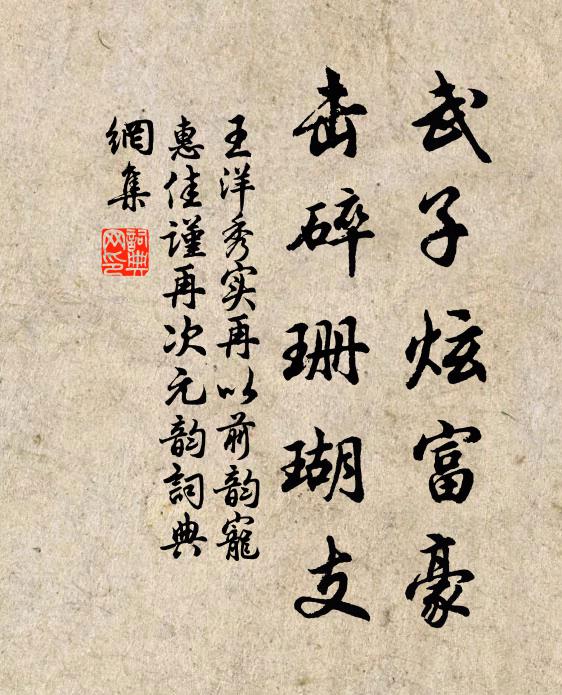 武子炫富豪
击碎珊瑚支
王洋秀实再以前韵寵
惠佳谨再次元韵詞典
網集
詞典
网印